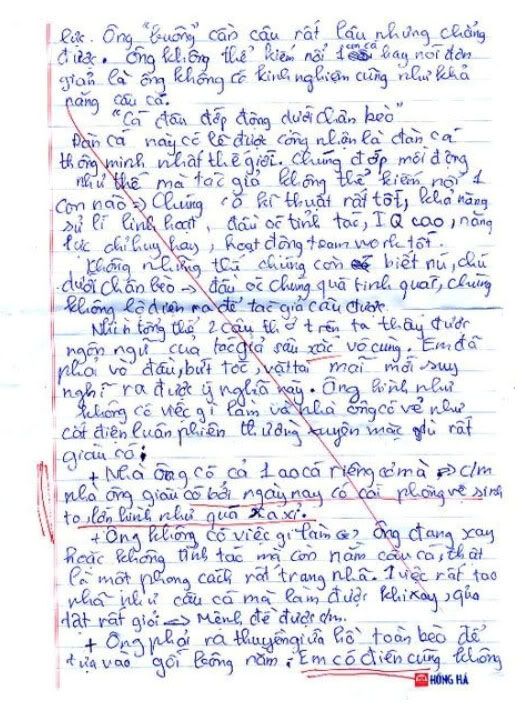 lực. Ông "buông" cần câu rất lâu nhưng chẳng
được. Ông không thể kiếm nổi 1 con cá hay nói đơn
giản là ông không có kinh nghiệm cũng như khả
năng câu cá.
"Cá đâu đớp động dưới chân bèo"
Đàn cá này có lẽ được công nhận là đàn cá
thông minh nhất thế giới. Chúng đớp mồi động
như thế mà tác giả không thể kiếm nổi 1
con nào => Chúng có kĩ thuật rất tốt, khả năng
sử lí linh hoạt, đầu óc tỉnh táo, IQ cao, năng
lực chỉ huy hay, hoạt động team work tốt.
Không những thế chúng còn biết núi, chú
dưới chân bèo -> đầu óc chúng quá tinh quái, chúng
không lộ diện ra để tác giả câu được
Nhìn tổng thể 2 câu thơ trên ta thấy được
ngôn ngữ của tác giả sâu xắc vô cùng. Em đã
phải vò đầu, bứt tóc, vặt tai mãi mới suy
nghĩ ra được ý nghĩa này. Ông hình như
không có việc gì làm và nhà ông có vẻ như
cắt điện luân phiên thường xuyên mặc dù rất
giàu có:
+ Nhà ông có cả 1 ao cá riêng cơ mà => c/m
nhà ông giàu có bởi ngày nay có cái phòng vệ sinh
to lớn hình như quá xa xỉ.
+ Ông không có việc gì làm Ông đang xay
hoặc không tỉnh táo mà còn nằm câu cá, thật
là một phong cách rất trang nhã. 1 việc rất tao
nhã như câu cá mà làm được khi xay, quả
thật rất giỏi => Mệnh đề được c/m.
+ Ông phải ra thuyền giữa hồ toàn bèo để
tựa vào gối buông nằm. Em có điên cũng không
HỒNG HÀ